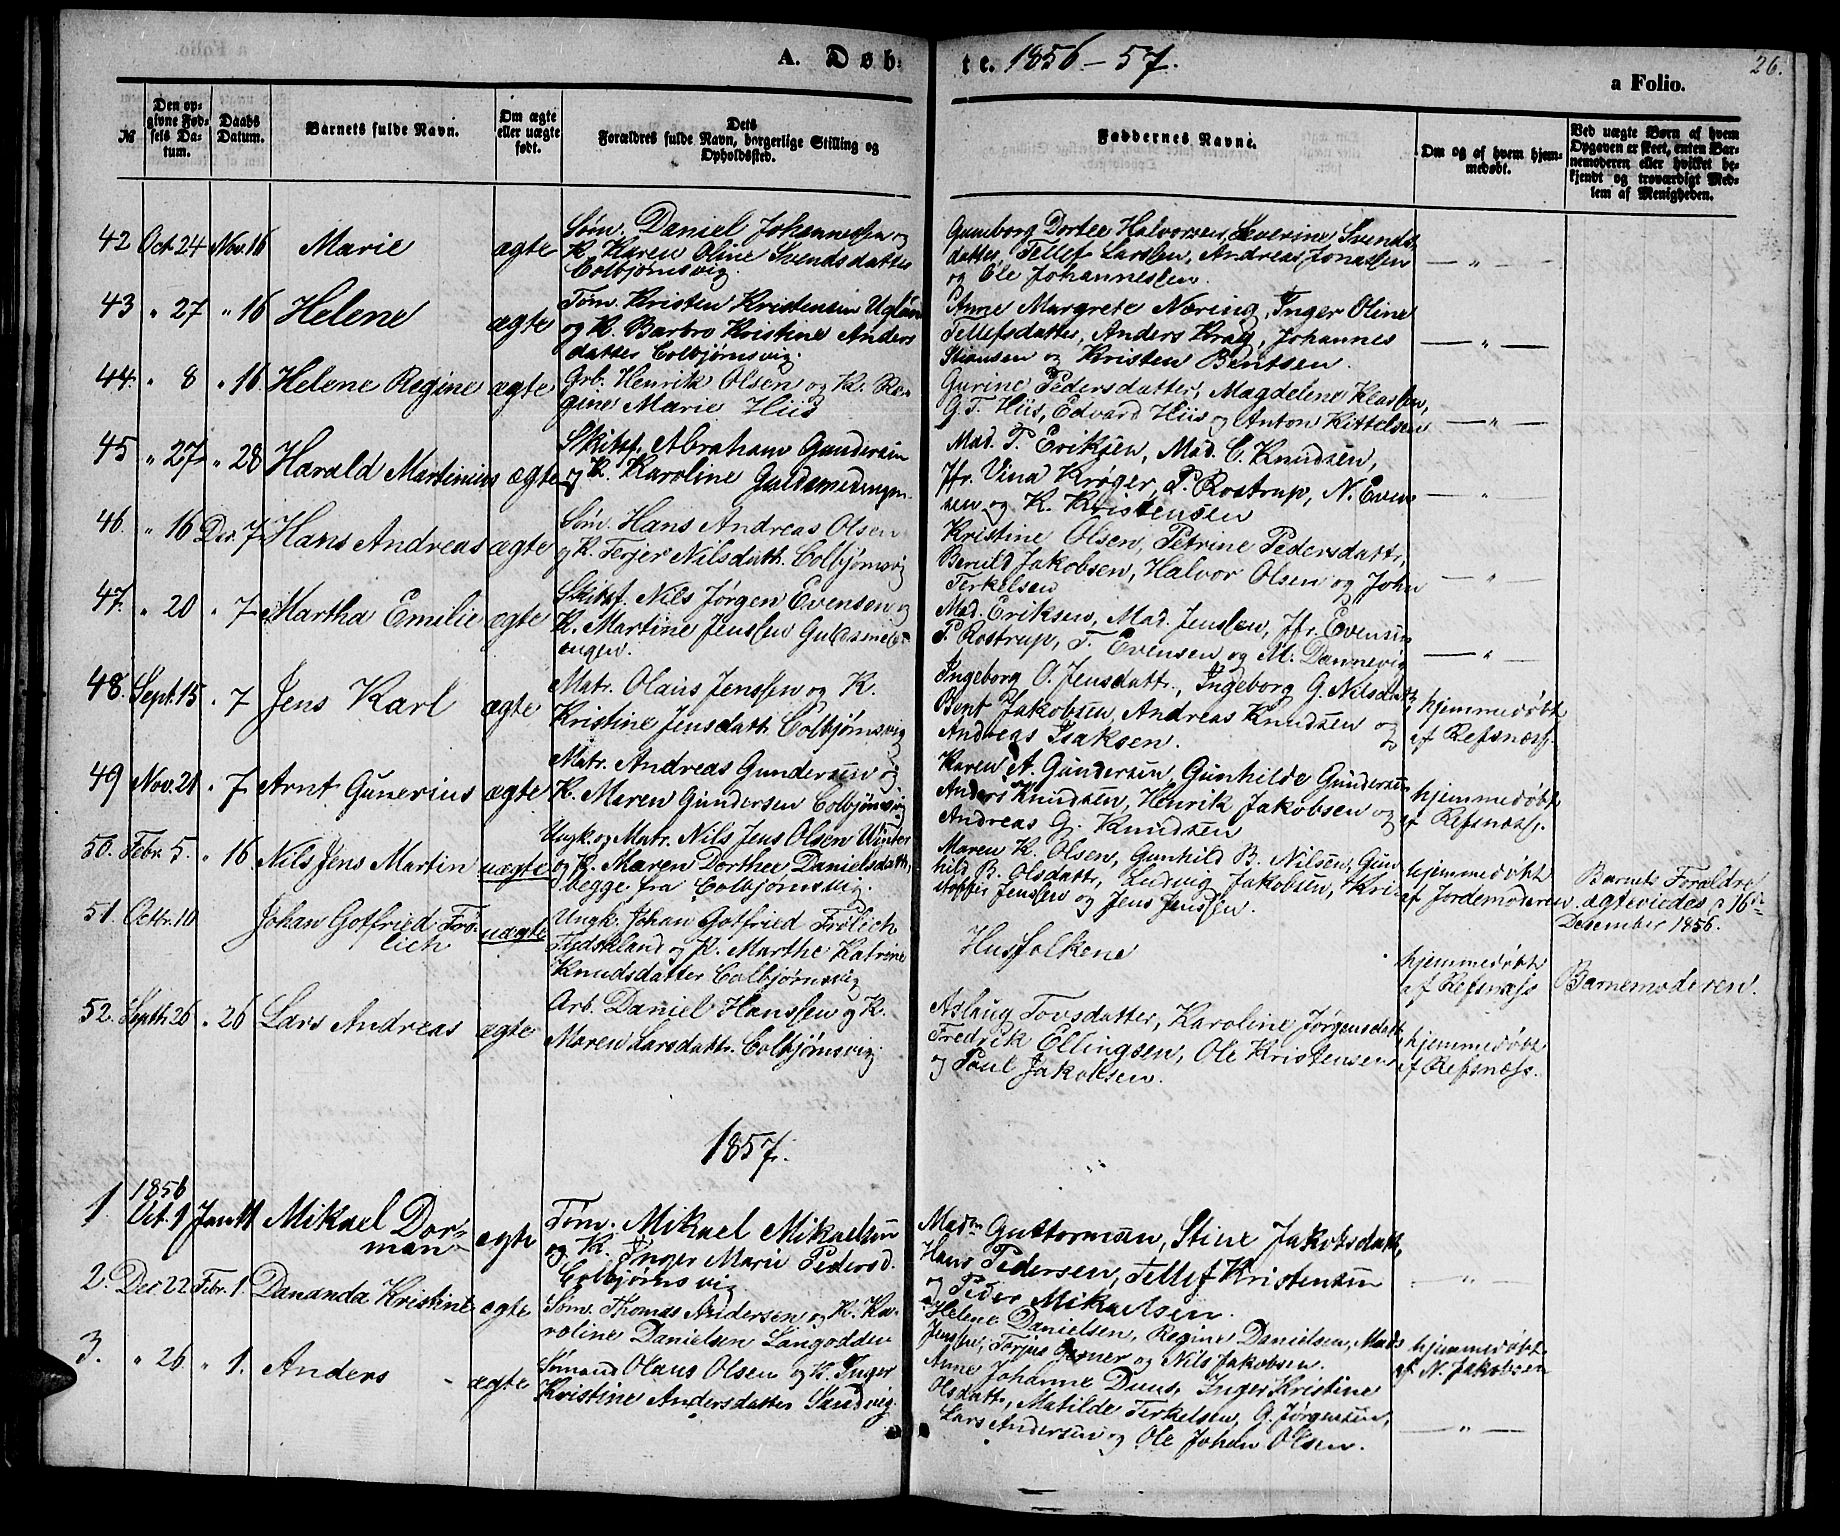 A. Døb-
te. 1856-57.
26.
a Folio.
№
Den op-
givne Fød-
sels Da-
tum.
Daabs
Datum.
Barnets fulde Navn.
Om ægte
eller uægte
født.
Dets
Forældres fulde Navn, borgerlige Stilling og
Opholdssted.
Faddernes Navne.
Om og af hvem hjem-
medøbt.
Ved uægte Børn af hvem
Opgaven er skeet, enten Bar-
nemoderen eller hvilket be-
kjendt og troværdigt Med-
lem af Menigheden.
42 Oct. 24 Nov. 16 Marie ægte
Søm. Daniel Johannessen og
K. Karen Oline Svendsdatter
Colbjørnsvig.
Gunborg Dortee Halvorsen, Severine Svends-
datter, Tellef Larssen, Andreas Jonassen
og Ole Johannessen.
— " —
43 " 27 " 16 Helene ægte
Tøm. Kristen Kristensen Ugland
og K. Barbro Kristine Anders
datter Colbjørnsvig.
Anne Margrete Næring, Inger Oline
Tellefsdatter, Anders Krag, Johannes
Stiansen og Kristen Bentsen.
— " —
44. " 8 " 16 Helene Regine ægte
Arb. Henrik Olsen og K. Re-
gine Marie Hiis
Gurine Pedersdatter, Magdelene Klassen,
G. T. Hiis, Edvard Hiis og Anton Kittelsen
— " —
45 " 27 " 28 Harald Martinius ægte
Skibsf. Abraham Gundersen
og K. Karoline Guldsmedengen
Mad. P. Eriksen, Mad. C. Knudsen,
Jfr. Vina Krøger, P. Rostrup, N. Even
sen og K. Kristensen
— " —
46. " 16 Dec. 7 Hans Andreas ægte
Søm. Hans Andreas Olsen
og K. Terjer Nilsdatt. Colbjørnsvig
Kristine Olsen, Petrine Pedersdattr,
Beruld Jakobsen, Halvor Olsen og John
Terkelsen
— " —
47. " 20 " 7 Martha Emilie ægte
Skibsf. Nils Jørgen Evensen og
K. Martine Jenssen Guldsmed-
engen.
Mad. Eriksen, Mad. Jenssen, Jfr. Evensen
P. Rostrup, T. Evensen og M. Dannevig
— " —
48. Sept. 15 " 7 Jens Karl ægte
Matr. Olaus Jenssen og K.
Kristine Jensdatt. Colbjørnsvig
Ingeborg O. Jensdattr., Ingeborg G. Nilsdatt.
Bent Jakobsen, Andreas Knudsen og
Andreas Isaksen.
hjemmedøbt
af Refsnæss.
49 Nov. 21 " 7 Arnt Gunerius ægte
Matr. Andreas Gundersen og
K. Maren Gundersen Colbjørnsvig
Karen A. Gundersen, Gunhilde Gundersen
Anders Knudsen, Henrik Jakobsen og
Andreas G. Knudsen
hjemmedøbt
af Refsnæss.
50. Febr. 5. " 16 Nils Jens Martin uægte
Ungk. og Matr. Nils Jens Olsen Winter
og K. Maren Dorthee Danielsdatt.,
begge fra Colbjørnsvig.
Maren K. Olsen, Gunhild B. Nilsen, Gun
hild B. Olsdattr, Ludvig Jakobsen, Kri
stoffer Jenssen og Jens Jenssen.
hjemmedøbt
af Jordemoderen.
Barnets Forældre
ægteviedes 16de
December 1856.
51. Octbr. 10 Johan Gotfried Frø-
lich uægte
Ungk. Johan Gotfried Frølich
Tydskland og K. Marthe Katrine
Knudsdatter Colbjørnsvig
Husfolkene
hjemmedøbt
af Refsnæss
Barnemoderen.
52. Septb. 26 " 26 Lars Andreas ægte
Arb. Daniel Hanssen og K.
Maren Larsdattr. Colbjørnsvig.
Aslaug Tovsdatter, Karoline Jørgensdatt.
Fredrik Ellingsen, Ole Kristensen
og Poul Jakobsen.
hjemmedøbt
af Refsnæss.
1857.
1. 1856
Oct. 9 Jan. 11 Mikael Dor-
man ægte
Tøm. Mikael Mikaelsen
og K. Inger Marie Pedersd.
Colbjørnsvig
Madm Guttormsen, Stine Jakobsdatt,
Hans Pedersen, Tellef Kristensen
og Peder Mikaelsen.
— " —
2. Dec 22 Febr. 1. Dananda Kristine ægte
Søm. Thomas Andersen og K. Ka-
roline Danielsen Langodden
Helene Danielsen, Regine Danielsen, Mads
Jenssen, Torjus Gxner og Nils Jakobsen.
hjemmedøbt
af N. Jakobsen
3. " 26 " 1. Anders ægte
Sømand Olaus Olsen og K. Inger
Kristine Andersdatter Sandvig.
Anne Johanne Duus, Inger Kristine
Olsdattr, Matilde Terkelsen, G. Jørgensen,
Lars Andersen og Ole Johan Olsen.
— " —